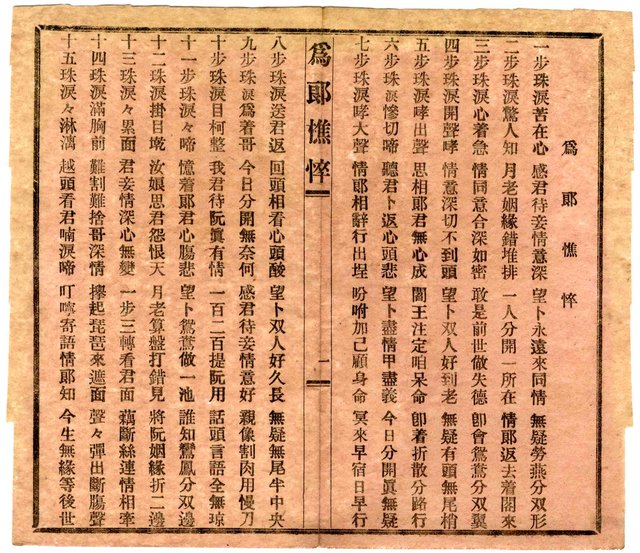 爲郎憔悴
一步珠淚苦在心 感君待妾情意深 望卜永遠來同情 無疑勞燕分双形
二步珠淚驚人知 月老姻緣錯堆排 一人分開一所在 情郎返去着閣來
三步珠淚心着急 情同意合深如密 敢是前世做失德 卽會鴛鴦分双翼
四步珠淚開聲哮 情意深切不到頭 望卜双人好到老 無疑有頭無尾梢
五步珠淚哮出聲 思相郎君無心成 閻王注定咱呆命 卽着折散分路行
六步珠淚慘切啼 聽君卜返心頭悲 望卜盡情甲盡義 今日分開眞無疑
七步珠淚哮大聲 情郎相辭行出埕 吩咐加己顧身命 冥來早宿日早行
爲郎憔悴
一
八步珠淚送君返 回頭相看心頭酸 望卜双人好久長 無疑無尾半中央
九步珠淚爲着哥 今日分開無奈何 感君待妾情意好 親像割肉用慢刀
十步珠淚目柯整 我君待阮眞有情 一百二百提阮用 話頭言語全無琼
十一步珠淚々啼 憶着郎君心腸悲 望卜鴛鴦做一池 誰知鸞鳳分双邊
十二珠淚掛目墘 汝娘思君怨恨天 月老算盤打錯見 將阮姻緣折二邊
十三珠淚々累面 君妾情深心無變 一步三轉看君面 藕斷絲連情相牽
十四珠淚滿胸前 難割難捨哥深情 擰起琵琶來遮面 聲々彈出斷膓聲
十五珠淚々淋漓 越頭看君喃淚啼 叮嚀寄語情郎知 今生無緣等後世